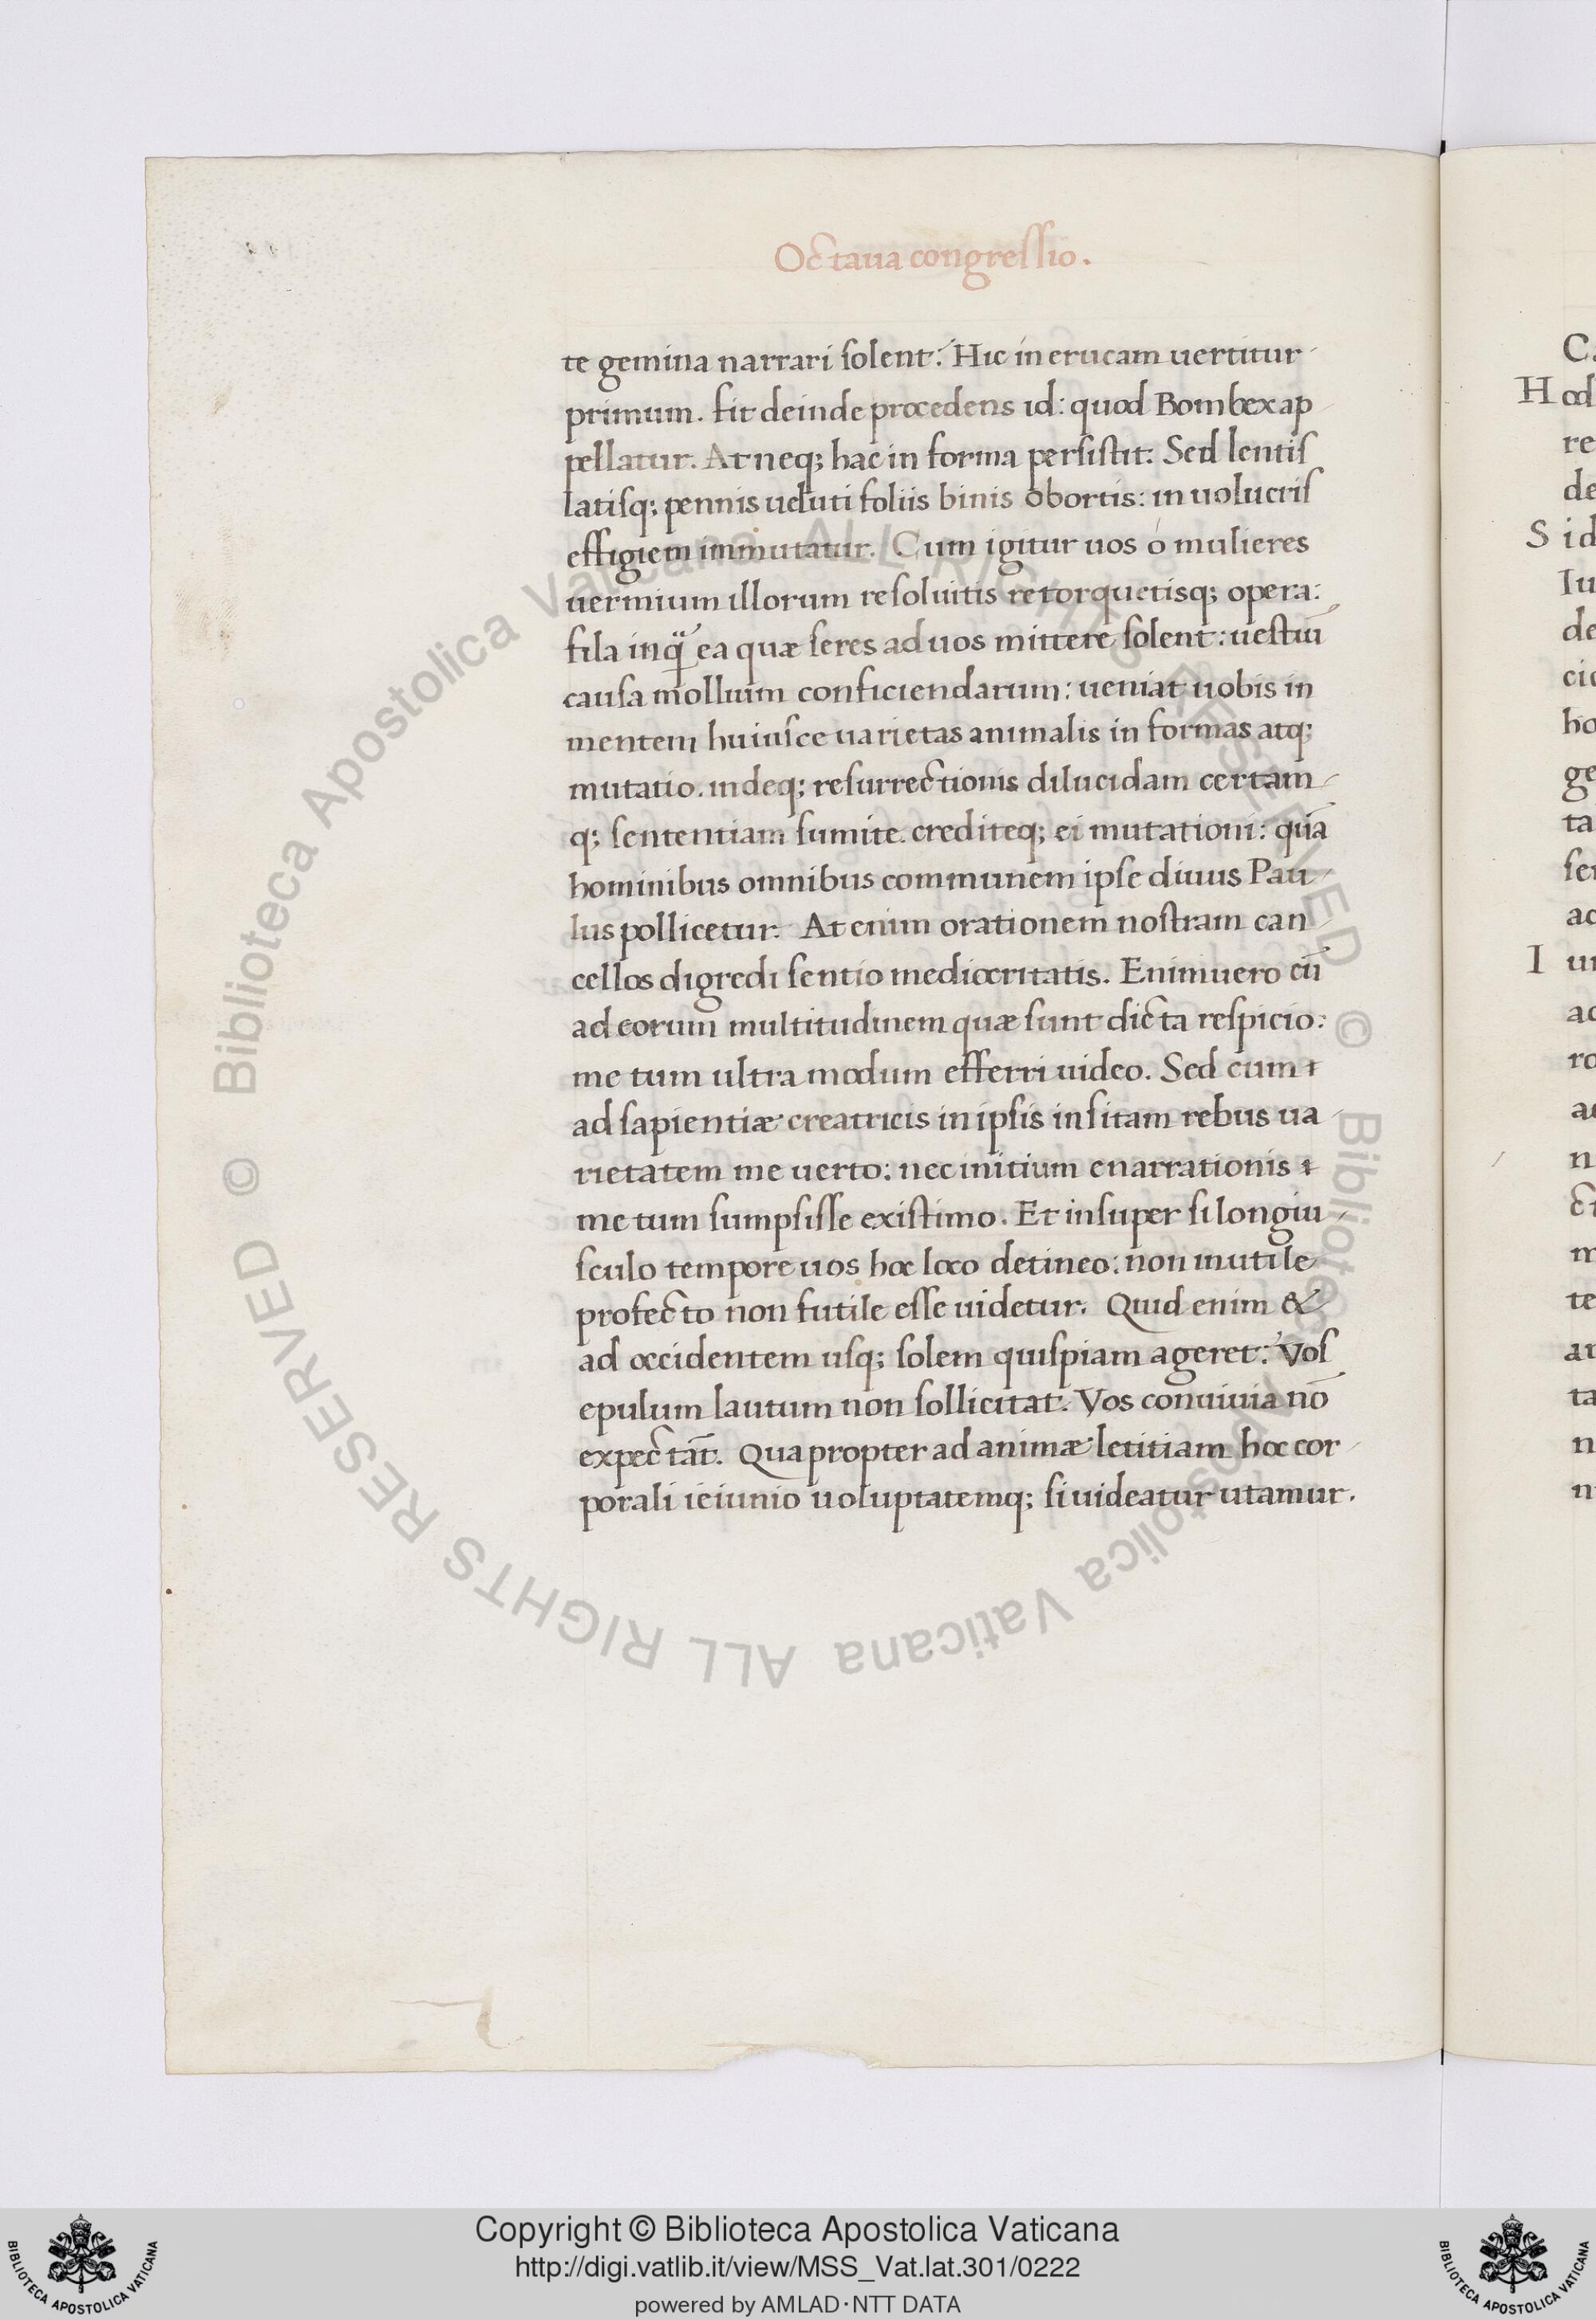 Octaua congreſſio.
te gemina narrari ſolent? Hic in erucam uertitur
primum. fit deinde procedens id: quod Bombex ap
pellatur. At neq; hac in forma perſiſtit: Sed lentiſ
latiſq; pennis ueluti foliis binis obortis: in uolucriſ
effigiem immutatur. Cum igitur uos ó mulieres
uermium illorum reſoluitis retorquetisq; opera:
fila inq̈ ea quæ ſeres ad uos mittere ſolent: ueſtiū
cauſa mollium conficiendarum: ueniat uobis in
mentem huiuſce uarietas animalis in formas atq;
mutatio. indeq; reſurrectionis dilucidam certam
q; ſententiam ſumite. crediteq; ei mutationi: quā
hominibus omnibus communem ipſe diuus Pau
lus pollicetur. At enim orationem noſtram can
cellos digredi ſentio mediocritatis. Enimuero cū
ad eorum multitudinem quæ ſunt dicta reſpicio:
me tum ultra modum efferri uideo. Sed cum
ad ſapientiæ creatricis in ipſis inſitam rebus ua
rietatem me uerto: nec initium enarrationis
me tum ſumpſiſſe exiſtimo. Et inſuper ſi longiu
ſculo tempore uos hoc loco detineo: non inutile
profecto non futile eſſe uidetur. Quid enim &
ad occidentem uſq; ſolem quiſpiam ageret? Voſ
epulum lautum non ſollicitat. Vos conuiuia nō
expectāt. Quapropter ad animæ letitiam hoc cor
porali ieiunio uoluptatemq; ſi uideatur utamur.
Biblioteca Apostolica Vaticana ALL RIGHTS RESERVED ©
Biblioteca Apostolica Vaticana ALL RIGHTS RESERVED ©
Copyright © Biblioteca Apostolica Vaticana
http://digi.vatlib.it/view/MSS_Vat.lat.301/0222
powered by AMLAD·NTT DATA
BIBLIOTECA APOSTOLICA VATICANA
BIBLIOTECA APOSTOLICA VATICANA